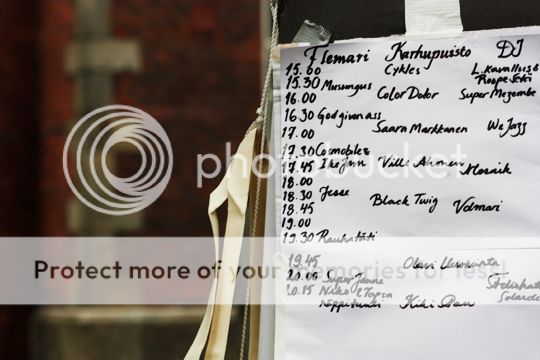 Flemari Karhupuisto DJ
15.00 Cykles L. Kavallus &
15.30 Musungus Roope Seki
16.00 Color Dolor Super Mezembe
16.30 Godgivenass
17.00 Saara Markkanen We Jazz
17.30 Cosmobles
17.45 Ville Ahonen Mosaik
18.00
18.30 Jesse
18.45 Black Twig Volmari
19.00
19.30 Rauhatäti
19.45 Olavi Uusivirta
20.00 Super Janne
20.15 Niko &
Kiki Pau
photobucket
Protect more of your memories for less!